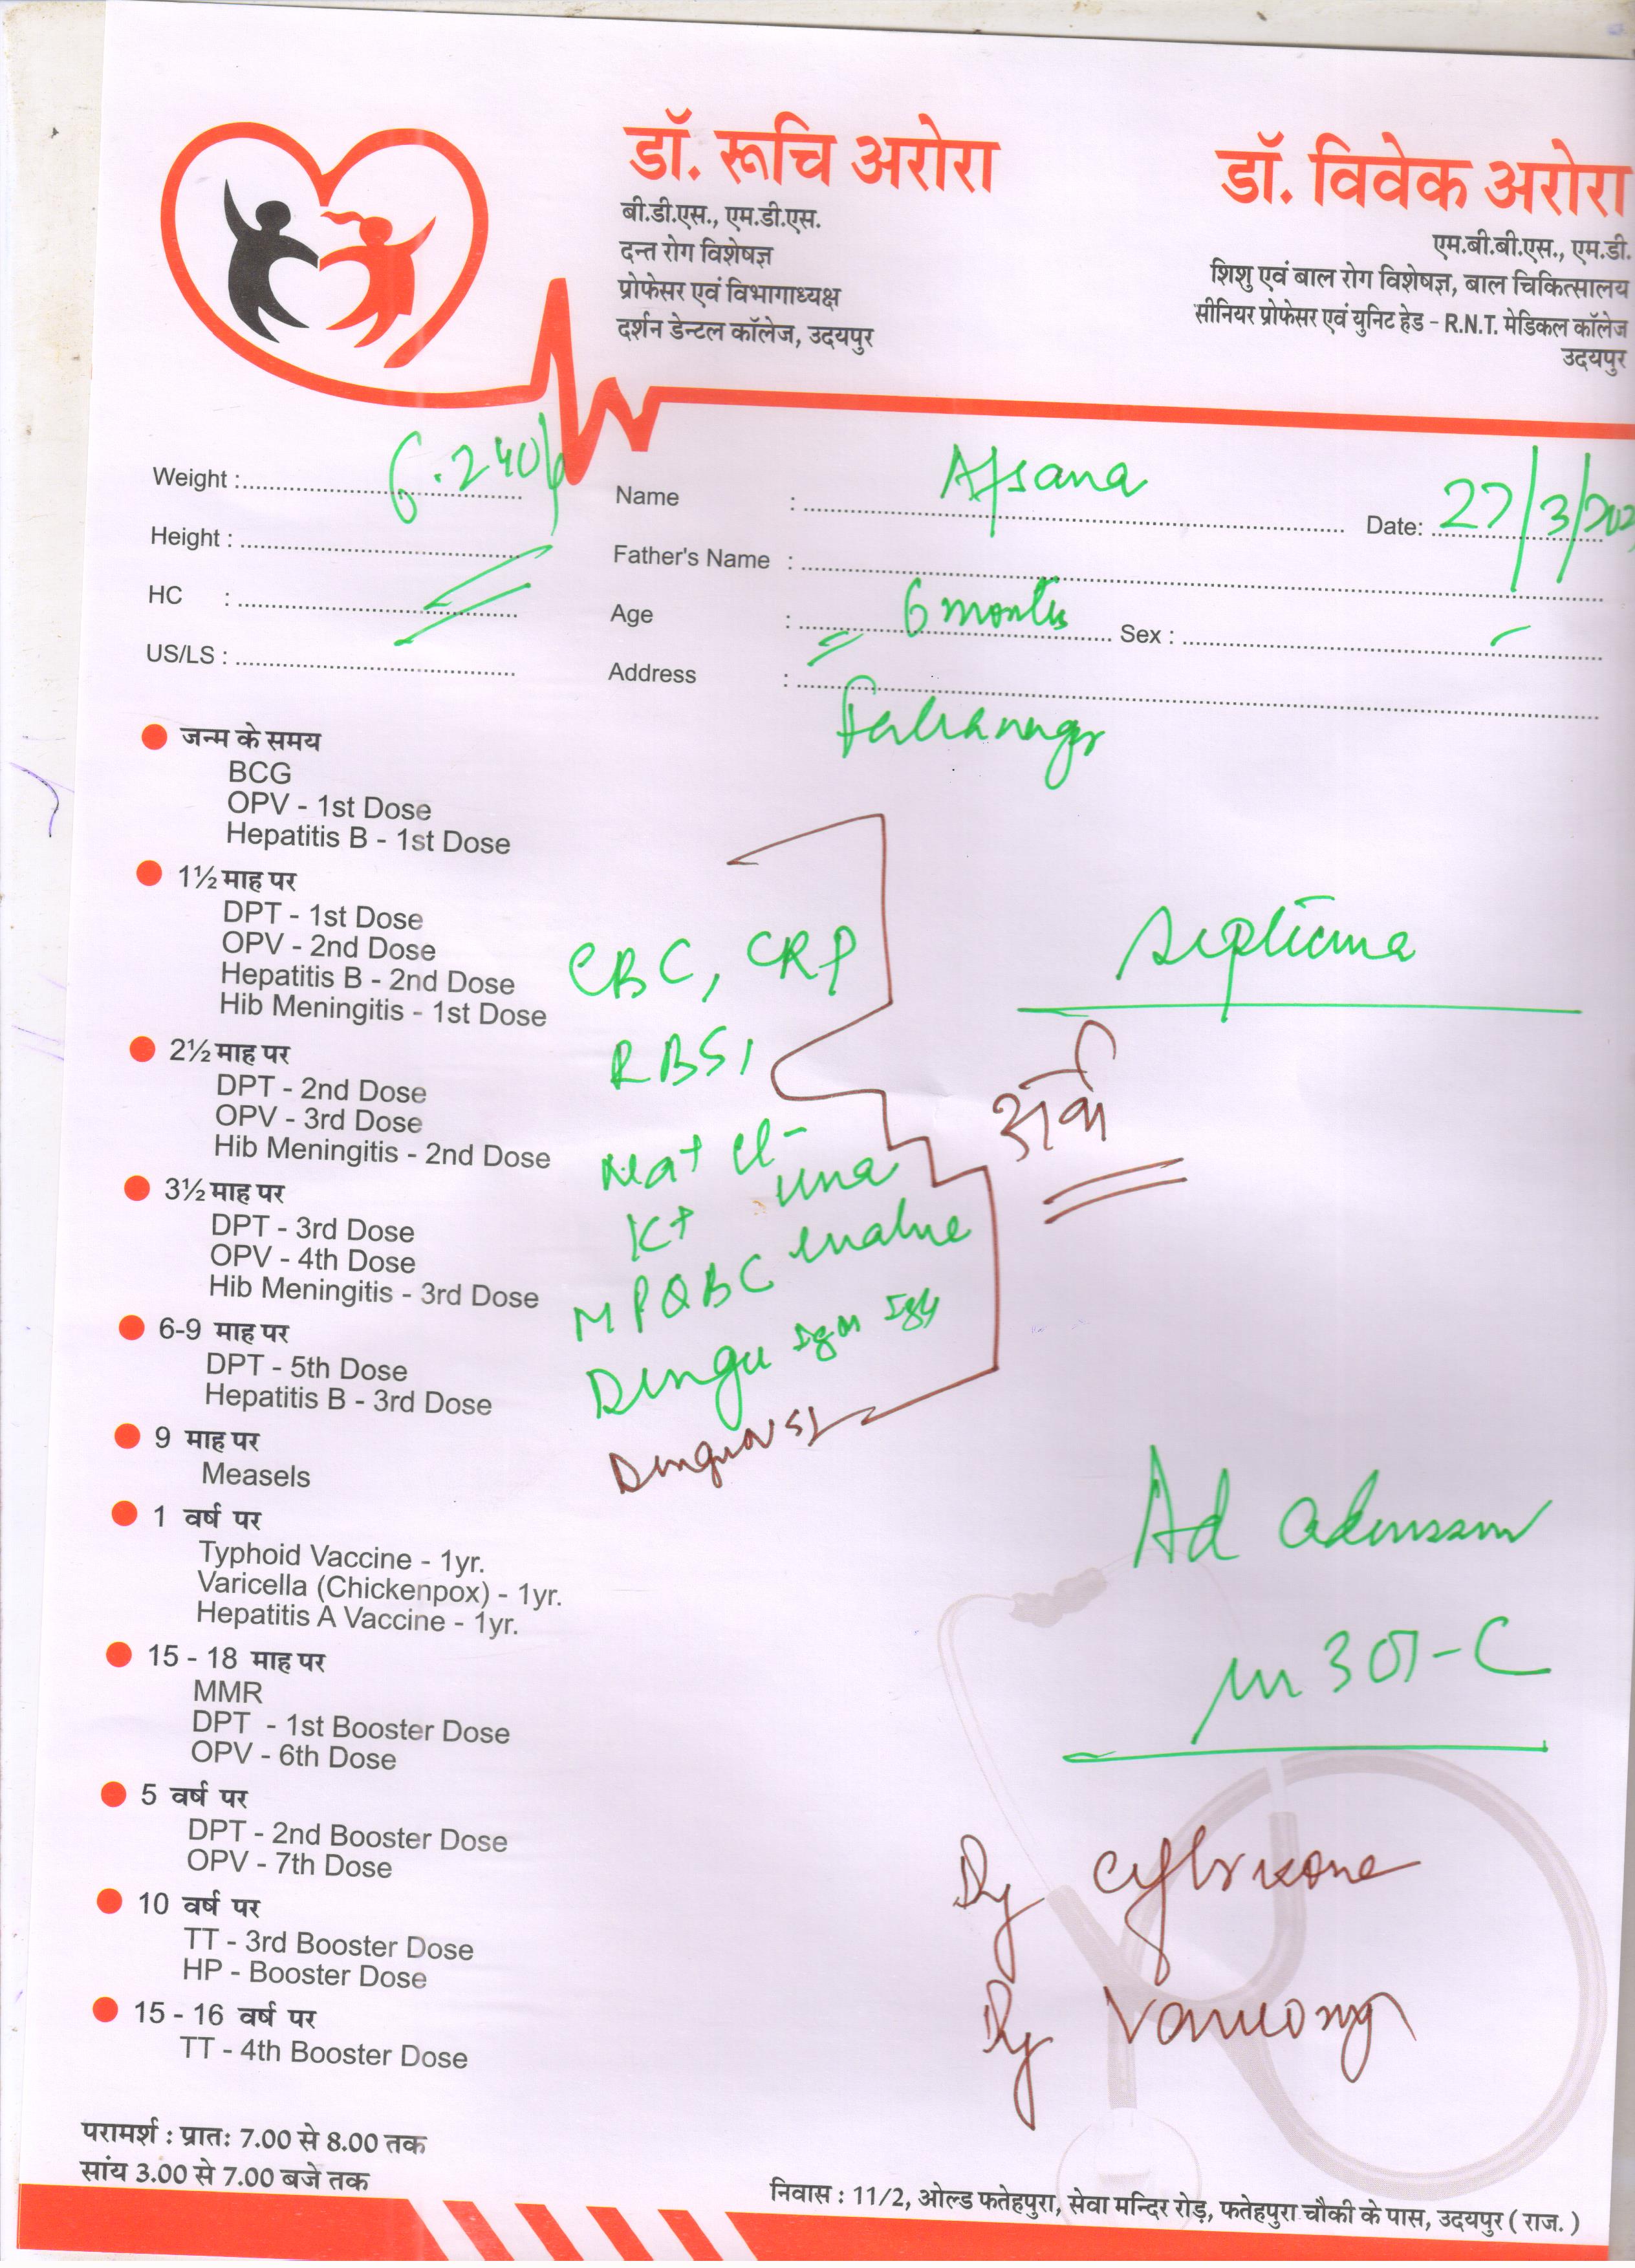 डॉ. रूचि अरोरा
बी.डी.एस., एम.डी.एस.
दन्त रोग विशेषज्ञ
प्रोफेसर एवं विभागाध्यक्ष
दर्शन डेन्टल कॉलेज, उदयपुर
डॉ. विवेक अरोरा
एम.बी.बी.एस., एम.डी.
शिशु एवं बाल रोग विशेषज्ञ, बाल चिकित्सालय
सीनियर प्रोफेसर एवं युनिट हेड - R.N.T. मेडिकल कॉलेज
उदयपुर
Weight : 6.240
Height :
HC :
US/LS :
Name : Afsana Date: 27/3/202
Father's Name :
Age : 6 months Sex :
Address :
जन्म के समय
BCG
OPV - 1st Dose
Hepatitis B - 1st Dose
1½ माह पर
DPT - 1st Dose
OPV - 2nd Dose
Hepatitis B - 2nd Dose
Hib Meningitis - 1st Dose
2½ माह पर
DPT - 2nd Dose
OPV - 3rd Dose
Hib Meningitis - 2nd Dose
3½ माह पर
DPT - 3rd Dose
OPV - 4th Dose
Hib Meningitis - 3rd Dose
6-9 माह पर
DPT - 5th Dose
Hepatitis B - 3rd Dose
9 माह पर
Measels
1 वर्ष पर
Typhoid Vaccine - 1yr.
Varicella (Chickenpox) - 1yr.
Hepatitis A Vaccine - 1yr.
15 - 18 माह पर
MMR
DPT - 1st Booster Dose
OPV - 6th Dose
5 वर्ष पर
DPT - 2nd Booster Dose
OPV - 7th Dose
10 वर्ष पर
TT - 3rd Booster Dose
HP - Booster Dose
15 - 16 वर्ष पर
TT - 4th Booster Dose
CBC, CRP
RBS,
Na+ Cl-
K+
MPQBC
Dengu IgM IgG
Ad
परामर्श : प्रातः 7.00 से 8.00 तक
सांय 3.00 से 7.00 बजे तक
निवास : 11/2, ओल्ड फतेहपुरा, सेवा मन्दिर रोड़, फतेहपुरा चौकी के पास, उदयपुर ( राज. )